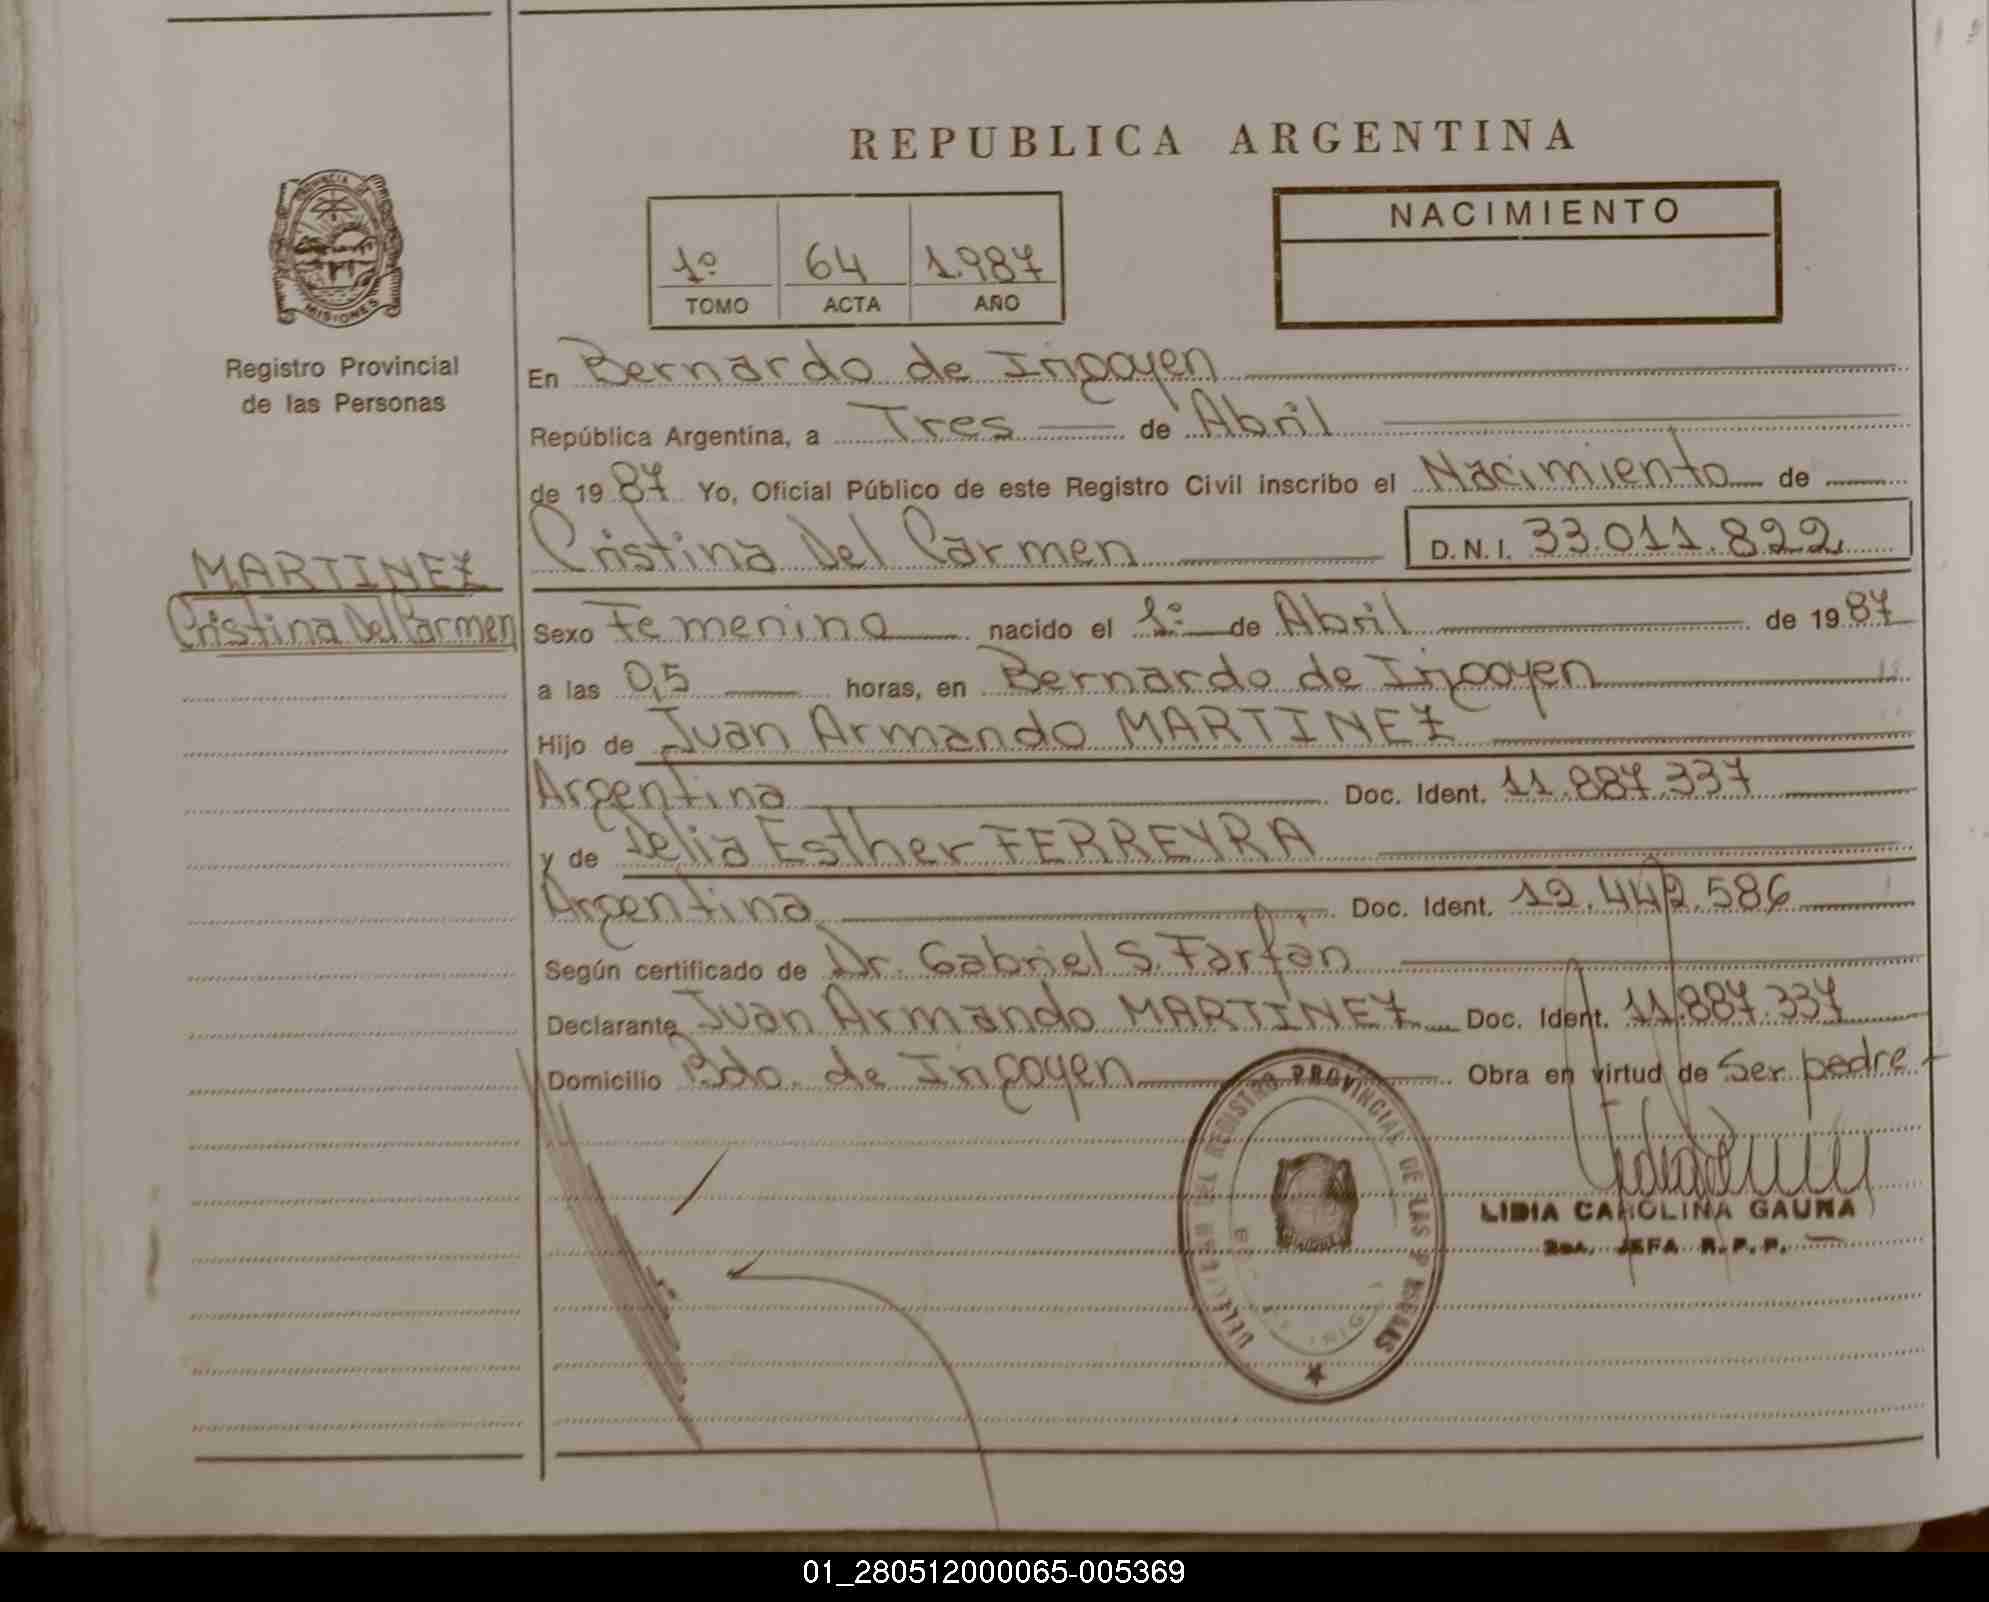 REPUBLICA ARGENTINA
PROVINCIA DE
MISIONES
Registro Provincial
de las Personas
1º 64 1.987
TOMO ACTA AÑO
NACIMIENTO
En Bernardo de Irigoyen
República Argentina, a Tres de Abril
de 1987 Yo, Oficial Público de este Registro Civil inscribo el Nacimiento de
Cristina Del Carmen D.N.I. 33.011.822
MARTINEZ
Cristina Del Carmen
Sexo Femenino nacido el 1º de Abril de 1987
a las 0,5 horas, en Bernardo de Irigoyen
Hijo de Juan Armando MARTINEZ
Argentina Doc. Ident. 11.887.337
y de Delia Esther FERREYRA
Argentina Doc. Ident. 12.442.586
Según certificado de Dr. Gabriel S. Farfán
Declarante Juan Armando MARTINEZ Doc. Ident. 11.887.337
Domicilio Bdo. de Irigoyen Obra en virtud de Ser padre
REGISTRO PROVINCIAL DE LAS
LIDIA CAROLINA GAUNA
JEFA R.P.P.
01_280512000065-005369